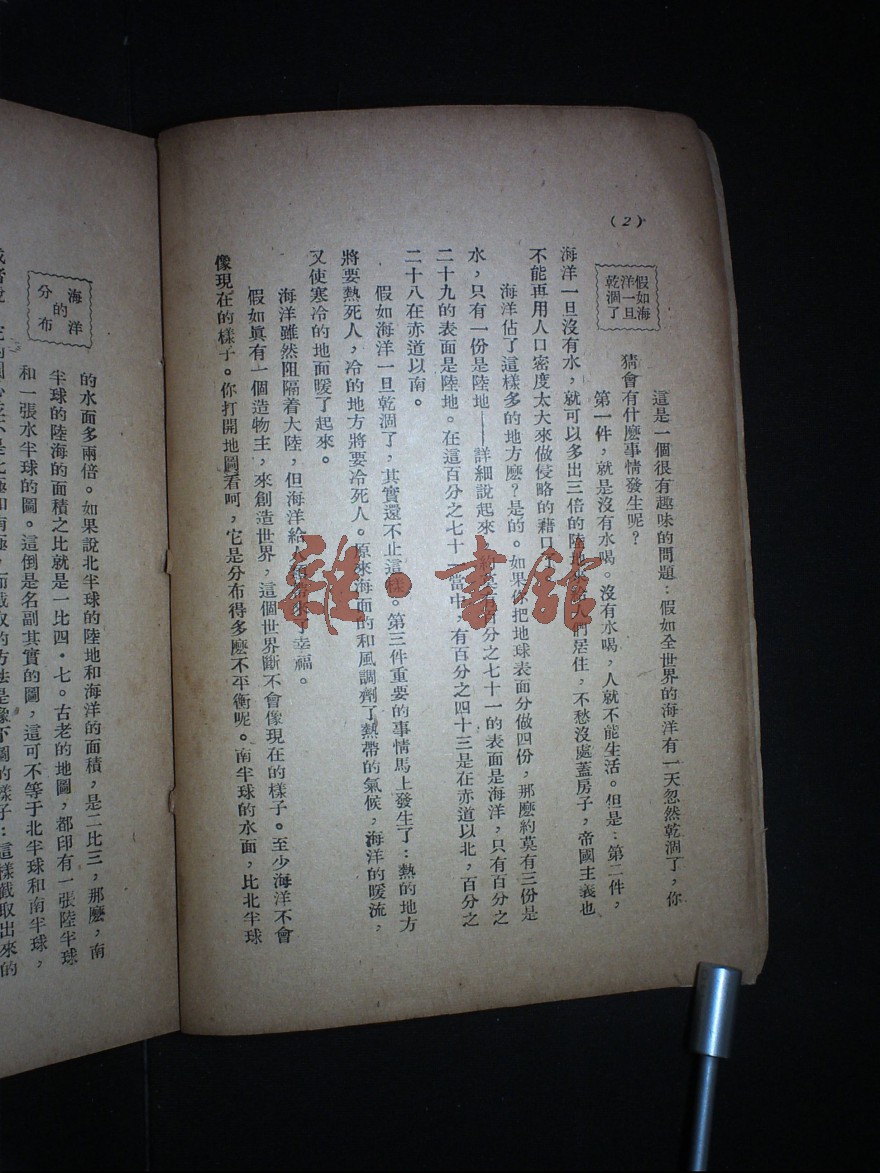 (2)
假如海
洋一旦
乾涸了
這是一個很有趣味的問題：假如全世界的海洋有一天忽然乾涸了，你
猜會有什麽事情發生呢？
第一件，就是沒有水喝。沒有水喝，人就不能生活。但是：第二件，
海洋一旦沒有水，就可以多出三倍的陸地來給人們居住，不愁沒處蓋房子，帝國主義也
不能再用人口密度太大來做侵略的藉口了。
海洋佔了這樣多的地方麽？是的。如果你把地球表面分做四份，那麽約莫有三份是
水，只有一份是陸地——詳細說起來，約莫百分之七十一的表面是海洋，只有百分之
二十九的表面是陸地。在這百分之七十一當中，有百分之四十三是在赤道以北，百分之
二十八在赤道以南。
假如海洋一旦乾涸了，其實還不止這樣。第三件重要的事情馬上發生了：熱的地方
將要熱死人，冷的地方將要冷死人。原來海面的和風調劑了熱帶的氣候，海洋的暖流，
又使寒冷的地面暖了起來。
海洋雖然阻隔着大陸，但海洋給人類帶來了幸福。
假如眞有一個造物主，來創造世界，這個世界斷不會像現在的樣子。至少海洋不會
像現在的樣子。你打開地圖看呵，它是分布得多麽不平衡呢。南半球的水面，比北半球
海洋
的
分布
的水面多兩倍。如果說北半球的陸地和海洋的面積，是二比三，那麽，南
半球的陸海的面積之比就是一比四·七。古老的地圖，都印有一張陸半球
和一張水半球的圖。這倒是名副其實的圖，這可不等于北半球和南半球，
雜·書館